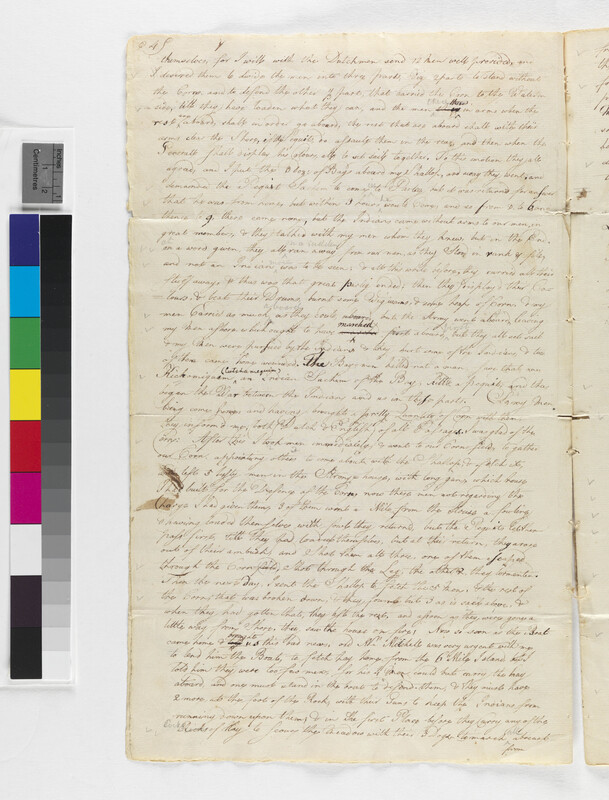 45
themselves, for I will with the Dutchmen send 12 men well provided, and
I desired them to divide the men into three parts, viz. 2 parts to stand without
the Corn, and to defend the other ⅓ part, that carried the Corn to the Water
side, till they have loaden what they can, and the men there in arms when the
rest are aboard, shall in order go aboard, the rest that are aboard shall with their
arms clear the Shore, if the Pequits do assault them in the rear, and then when the
General shall display his colours, all to set sail together. To this motion they all
agreed, and I put the 30 of Bags aboard my shallop, and away they went, and
demanded the Pequit Sachem to come to Parley, but it was returned for answer
that he was from home, but within 3 hours he would come, and so from 3 to 6 and
thence to 9, there came none, but the Indians came without arms to our men, in
great numbers, & they talked with my men whom they knew, but in the End,
on a word given, they all ran away from our men, as they stood in rank & file,
and not an Indian was to be seen, & all this while before, they carried all their
stuff away, & thus was that great parley ended. then they displayed their Co-
lours, & beat their Drums, burnt some Wigwams, & some heaps of Corn, & my
men carried as much as they could aboard, but the Army went aboard, leaving
my men ashore which ought to have marched first aboard, but they all set sail
& my men were pursued by the Indians & they hurt some of the Indians, & two
of them came home wounded. The Bay men killed not a man, save that one
Kichomiquim, an Indian Sachem of the Bay, killed a Pequit, and thus
began the War between the Indians and us in these parts. So my men
being come home and having brought a pretty Quantity of Corn with them,
they informed me, both Dutch & English, of all Passages. I was glad of the
Corn. After this I took men immediately, & went to our Corn field, to gather
our Corn, appointing others to come about with the Shallop & fetch it,
& left 5 lusty men in the Strong house, with long guns, which house
I had built for the Defence of the Corn. now these men not regarding the
Charge I had given them, 3 of them went a Mile from the House a fowling
& having loaded themselves with fowl they returned, but the Pequits let them
pass first, till they had loaded themselves, but at their return, they arose
out of their ambush and shot them all three, one of them escaped
through the Corn, shot through the Leg, the other 2 they tormented.
Then the next Day, I sent the Shallop to fetch the 5 men, & the rest of
the Corn that was broken down, & they found but 3 as is said above, &
when they had gotten that, they left the rest, and as soon as they were gone a
little way from Shore, they saw the house on fire. Now so soon as the Boat
came home & brought us this bad news, old Mr. Mitchell was very urgent with me
to lend him the Boat, to fetch hay home from the 6 Mile Island but I
told him they were too few men, for his 4 men could but carry the hay
aboard, and one must stand in the boat to defend them, & they must have
2 more at the foot of the Rock, with their Guns to keep the Indians from
running down upon them, & in the first Place before they carry any of the
Cocks of Hay, to scour the Meadow with their 3 Dogs, to march all abreast
from